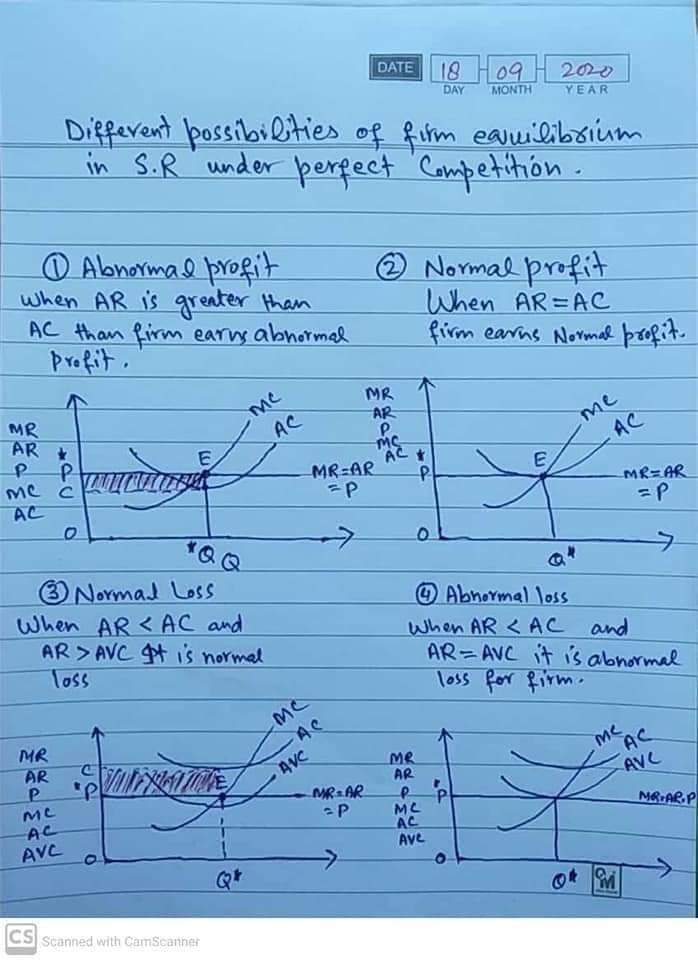 DATE 18 09 2020
DAY MONTH YEAR
Different possibilities of firm equilibrium
in S.R under perfect Competition.
① Abnormal profit
When AR is greater than
AC than firm earns abnormal
Profit.
MR
AR
P
MC
AC
*
P
C
O
MC
AC
E
MR=AR
=P
*Q Q
② Normal profit
When AR=AC
firm earns Normal profit.
MR
AR
P
MC
AC
*
P
O
MC
AC
E
MR=AR
=P
Q*
③ Normal Loss
When AR < AC and
AR > AVC It is normal
loss
MR
AR
P
MC
AC
AVC
C
*P
O
MC
AC
AVC
E
MR=AR
=P
Q*
④ Abnormal loss
When AR < AC and
AR = AVC it is abnormal
loss for firm.
MR
AR
P
MC
AC
AVC
*P
O
MC
AC
AVC
MR=AR=P
Q*
CS Scanned with CamScanner